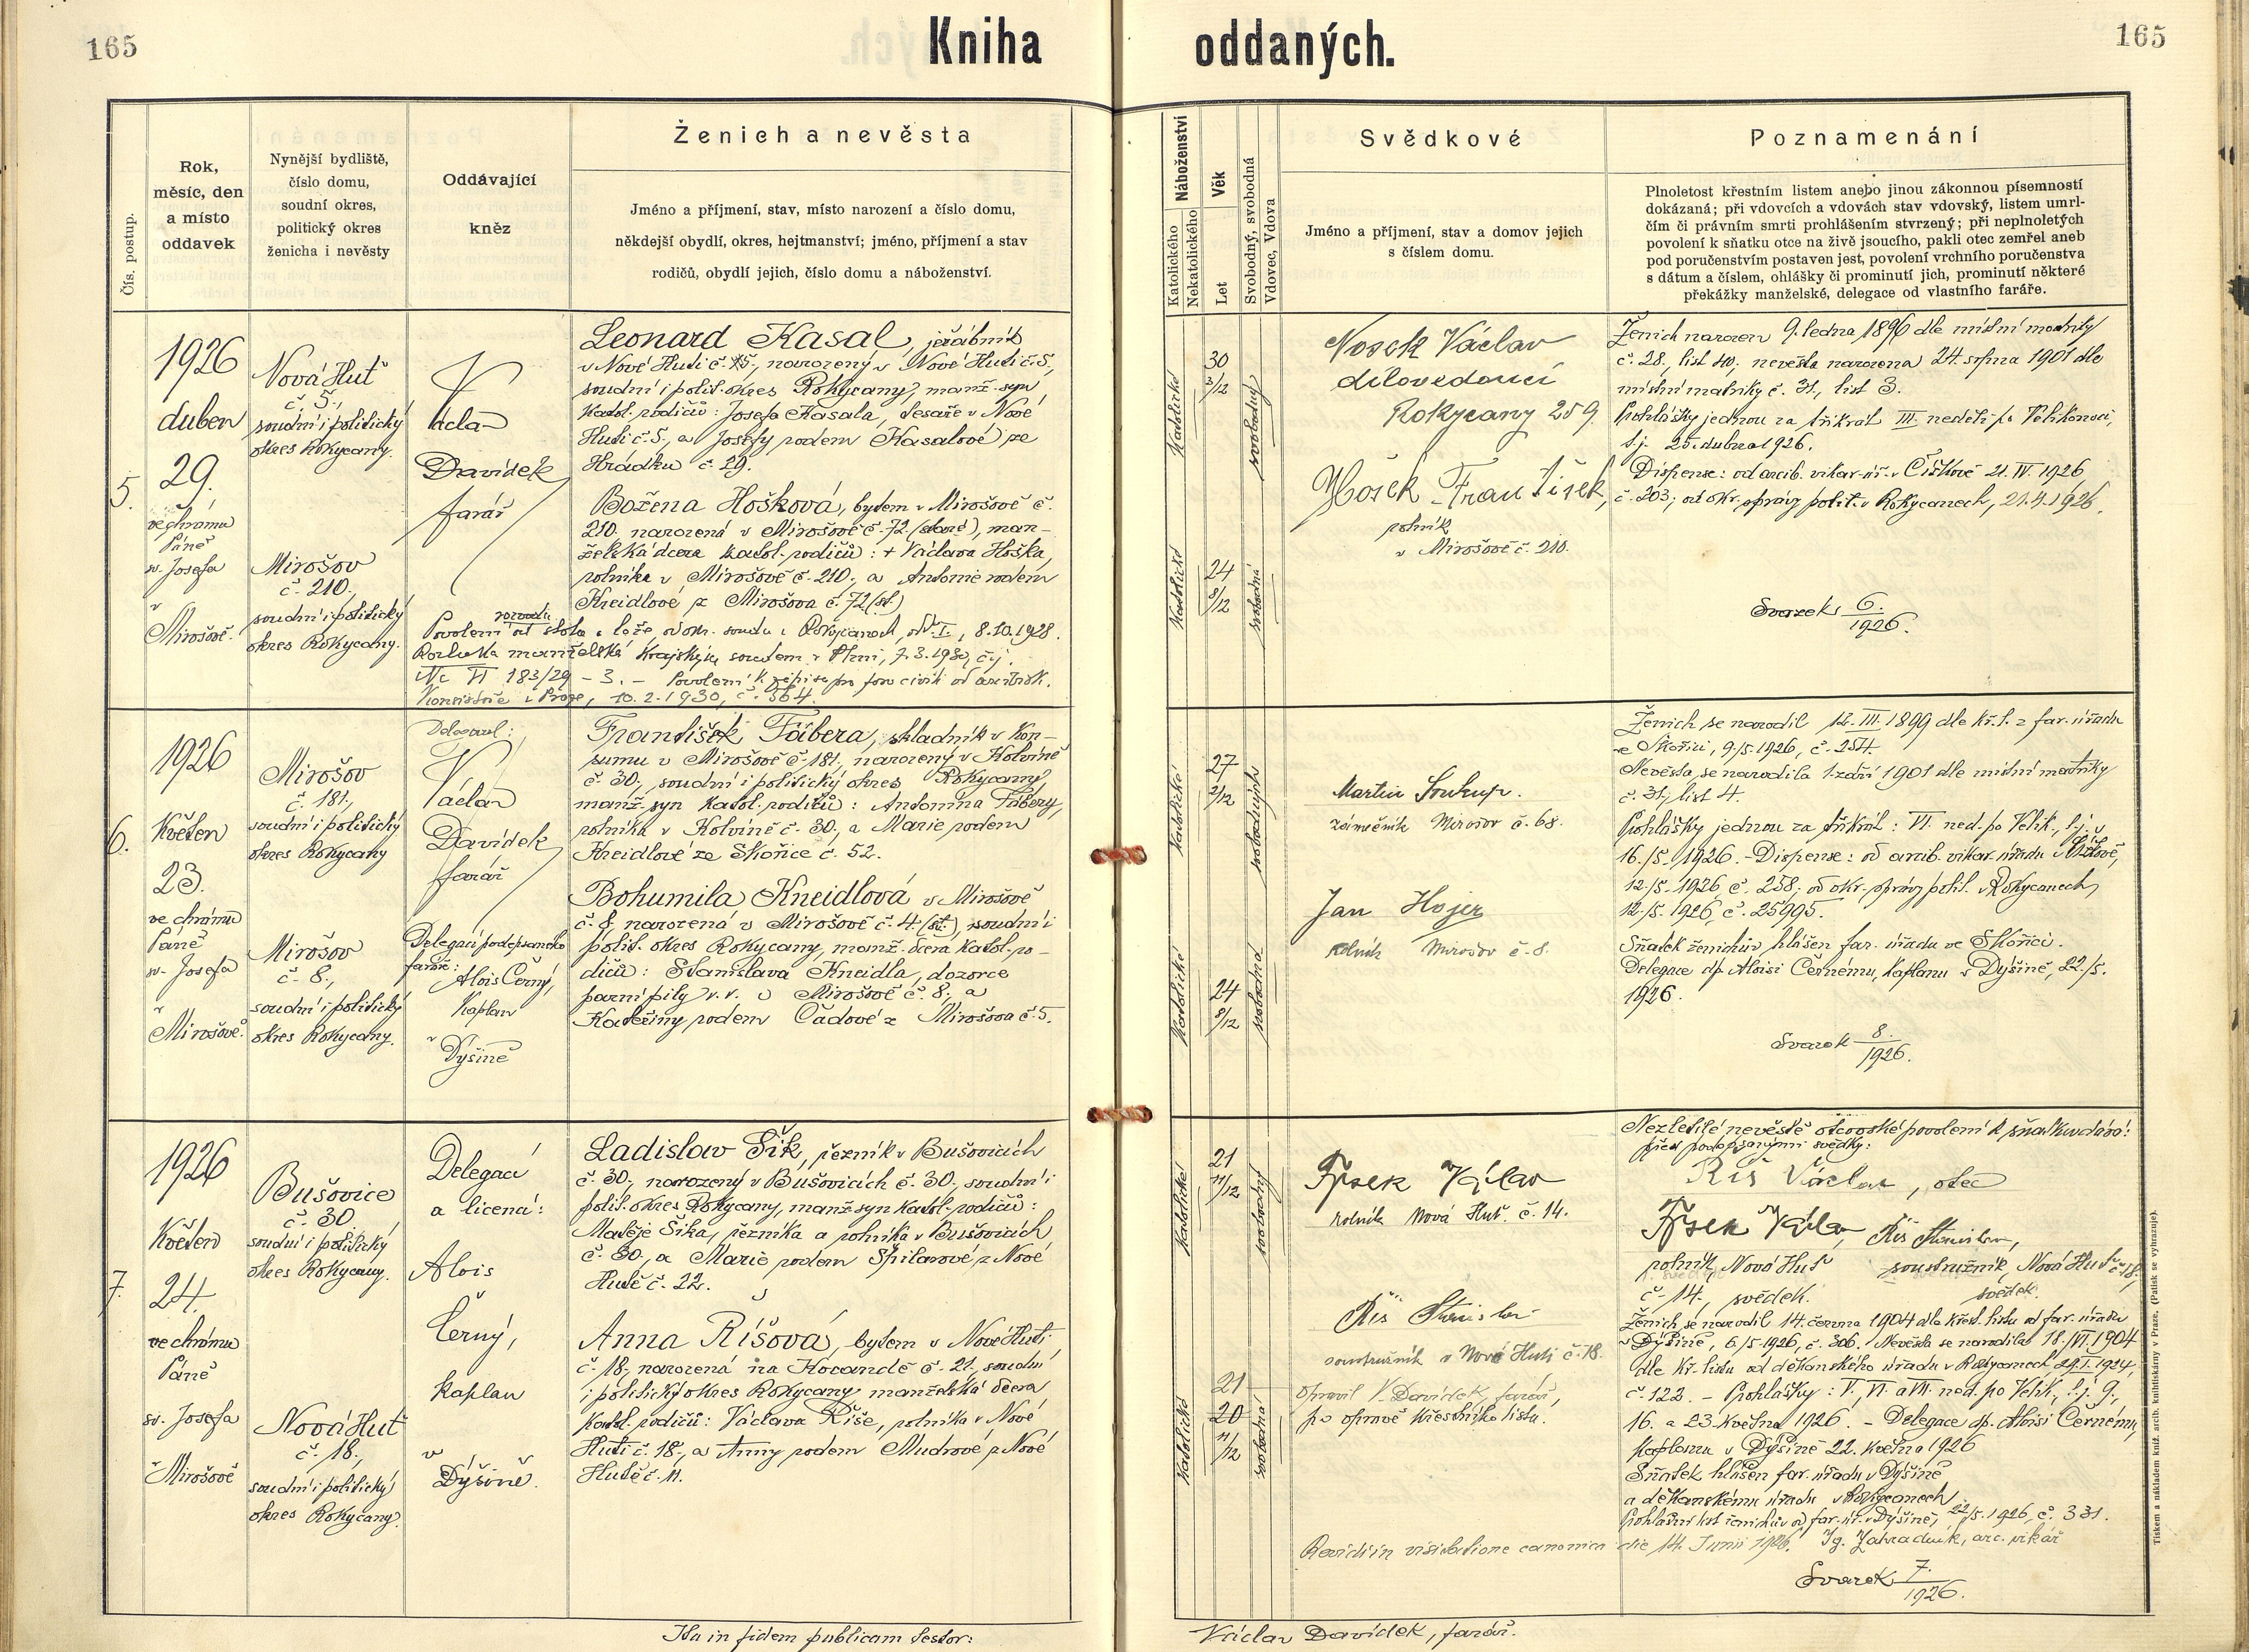 165
Kniha
oddaných.
165
Čís. postup.
Rok,
měsíc, den
a místo
oddavek
Nynější bydliště,
číslo domu,
soudní okres,
politický okres
ženicha i nevěsty
Oddávající
kněz
Ženich a nevěsta
Jméno a příjmení, stav, místo narození a číslo domu,
někdejší obydlí, okres, hejtmanství; jméno, příjmení a stav
rodičů, obydlí jejich, číslo domu a náboženství.
Náboženství
Katolického
Nekatolického
Věk
Let
Svobodný, svobodná
Vdovec, Vdova
Svědkové
Jméno a příjmení, stav a domov jejich
s číslem domu.
Poznamenání
Plnoletost křestním listem anebo jinou zákonnou písemností
dokázaná; při vdovcích a vdovách stav vdovský, listem umrl-
čím či právním smrti prohlášením stvrzený; při neplnoletých
povolení k sňatku otce na živě jsoucího, pakli otec zemřel aneb
pod poručenstvím postaven jest, povolení vrchního poručenstva
s dátum a číslem, ohlášky či prominutí jich, prominutí některé
překážky manželské, delegace od vlastního faráře.
5.
1926
duben
29.
ve chrámu
Páně
sv. Josefa
v
Mirošově.
Nová Huť
č. 5.,
soudní i politický
okres Rokycany.
Mirošov
č. 210.,
soudní i politický
okres Rokycany.
Václav
Davídek
farář
Leonard Kasal, jeřábník
v Nové Huti č. 5, narozený v Nové Huti č. 5,
soudní i polit. okres Rokycany, manž. syn
katol. rodičů: Josefa Kasala, tesaře v Nové
Huti č. 5., a Josefy rodem Kasalové ze
Hrádku č. 29.
Božena Hošková, bytem v Mirošově č.
210. narozená v Mirošově č. 72 (staré), man-
želská dcera katol. rodičů: + Václava Hoška,
rolníka v Mirošově č. 210., a Antonie rodem
Kreidlové z Mirošova č. 72 (st.)
rozvodu
Povolení od stolu a lože, od okr. soudu v Rokycanech, odd. I., 8.10.1928.
Rozluka manželská Krajským soudem v Plzni, 7.3.1930, čj.
Nc VI 183/29 - 3. - Povolení k zápisu pro foro civili od arcibisk.
Konsistoře v Praze, 10.2.1930, č. 564.
katolické
30
3/12
svobodný
katolické
24
8/12
svobodná
Nosek Václav
dílovedoucí
Rokycany 259.
Hošek František,
rolník
v Mirošově č. 210.
Ženich narozen 9. ledna 1896 dle místní matriky
č. 28., list 40; nevěsta narozena 24. srpna 1901 dle
místní matriky č. 31, list 3.
Prohlášky jednou za třikrát III. neděli po Velikonoci,
t.j. 25. dubna 1926.
Dispense: od arcib. vikar. úř. v Čížkově 21. IV. 1926
č. 203; od okr. správy polit. v Rokycanech, 21.4.1926.
Svazek 6./1926.
6.
1926
Květen
23.
ve chrámu
Páně
sv. Josefa
v
Mirošově.
Mirošov
č. 181.,
soudní i politický
okres Rokycany
Mirošov
č. 8.,
soudní i politický
okres Rokycany.
Delegoval:
Václav
Davídek
farář
Delegací podepsaného
faráře:
Alois Černý,
kaplan
v
Dýšině
František Fábera, skladník v kon-
sumu v Mirošově č. 181., narozený v Kolvíně
č. 30., soudní i politický okres Rokycany,
manž. syn katol. rodičů: Antonína Fábery,
rolníka v Kolvíně č. 30., a Marie rodem
Kreidlové ze Skořice č. 52.
Bohumila Kneidlová v Mirošově
č. 8, narozená v Mirošově č. 4. (st.), soudní i
polit. okres Rokycany, manž. dcera katol. ro-
dičů: Stanislava Kneidla, dozorce
parní pily v. v. v Mirošově č. 8., a
Kateřiny rodem Čadové z Mirošova č. 5.
katolické
27
2/12
svobodný
katolické
24
8/12
svobodná
Martin Soukup.
zámečník Mirošov č. 68.
Jan Hojer
rolník Mirošov č. 8.
Ženich se narodil 12. III. 1899 dle kř. l. z far. úřadu
ve Skořici, 9./5. 1926, č. 254.
Nevěsta se narodila 1. září 1901 dle místní matriky
č. 31, list 4.
Prohlášky jednou za třikrát: VI. ned. po Velik., t.j.
16./5. 1926. - Dispense: od arcib. vikar. úřadu v Čížkově,
12./5. 1926 č. 258; od okr. správy polit. v Rokycanech,
12./5. 1926, č. 25995.
Sňatek ženichův hlášen far. úřadu ve Skořici.
Delegace dp. Aloisi Černému, kaplanu v Dýšině, 22./5.
1926.
Svazek 8./1926.
7.
1926
Květen
24.
ve chrámu
Páně
sv. Josefa
v
Mirošově
Bušovice
č. 30
soudní i politický
okres Rokycany.
Nová Huť
č. 18.,
soudní i politický
okres Rokycany.
Delegací
a licencí:
Alois
Černý,
kaplan
v
Dýšině.
Ladislav Šik, řezník v Bušovicích
č. 30., narozený v Bušovicích č. 30., soudní i
polit. okres Rokycany, manž. syn katol. rodičů:
Matěje Šika, řezníka a rolníka v Bušovicích
č. 30., a Marie rodem Špilarové z Nové
Hutě č. 22.
Anna Říšová, bytem v Nové Huti
č. 18., narozená na Kocandě č. 21., soudní
i politický okres Rokycany, manželská dcera
katol. rodičů: Václava Říše, rolníka v Nové
Huti č. 18., a Anny rodem Mudrové z Nové
Hutě č. 11.
katolické
21
11/12
svobodný
katolické
21
20
11/12
svobodná
Václav
rolník Nová Huť. č. 14.
Říš Stanislav
soustružník v Nové Huti č. 18.
Opravil V. Davídek, farář,
po opravě křestního listu.
Nezletilé nevěstě otcovské povolení k sňatku dává:
před podepsanými svědky:
Říš Václav, otec
Říš Stanislav,
rolník Nová Huť
soustružník, Nová Huť č. 18,
č. 14., svědek.
svědek.
Ženich se narodil 14. června 1904 dle křest. listu od far. úřadu
v Dýšině, 6./5. 1926, č. 306. Nevěsta se narodila 18./VI. 1904
dle kř. listu od děkanského úřadu v Rokycanech 29. I. 1924,
č. 122. - Prohlášky: V., VI. a VII. ned. po Velik., t.j. 9.,
16. a 23. května 1926. - Delegace dp. Aloisi Černému,
kaplanu v Dýšině 22. května 1926
Sňatek hlášen far. úřadu v Dýšině
a děkanskému úřadu v Rokycanech
Prohlašní list ženichův od far. úř. v Dýšině, 22/5. 1926, č. 331.
Revidi in visitatione canonica die 14. Junii 1926. Ig. Zahradník, arc. vikář
Svazek 7./1926.
Tiskem a nákladem kníž. arcib. knihtiskárny v Praze. (Patisk se vyhrazuje).
Ita in fidem publicam testor:
Václav Davídek, farář.